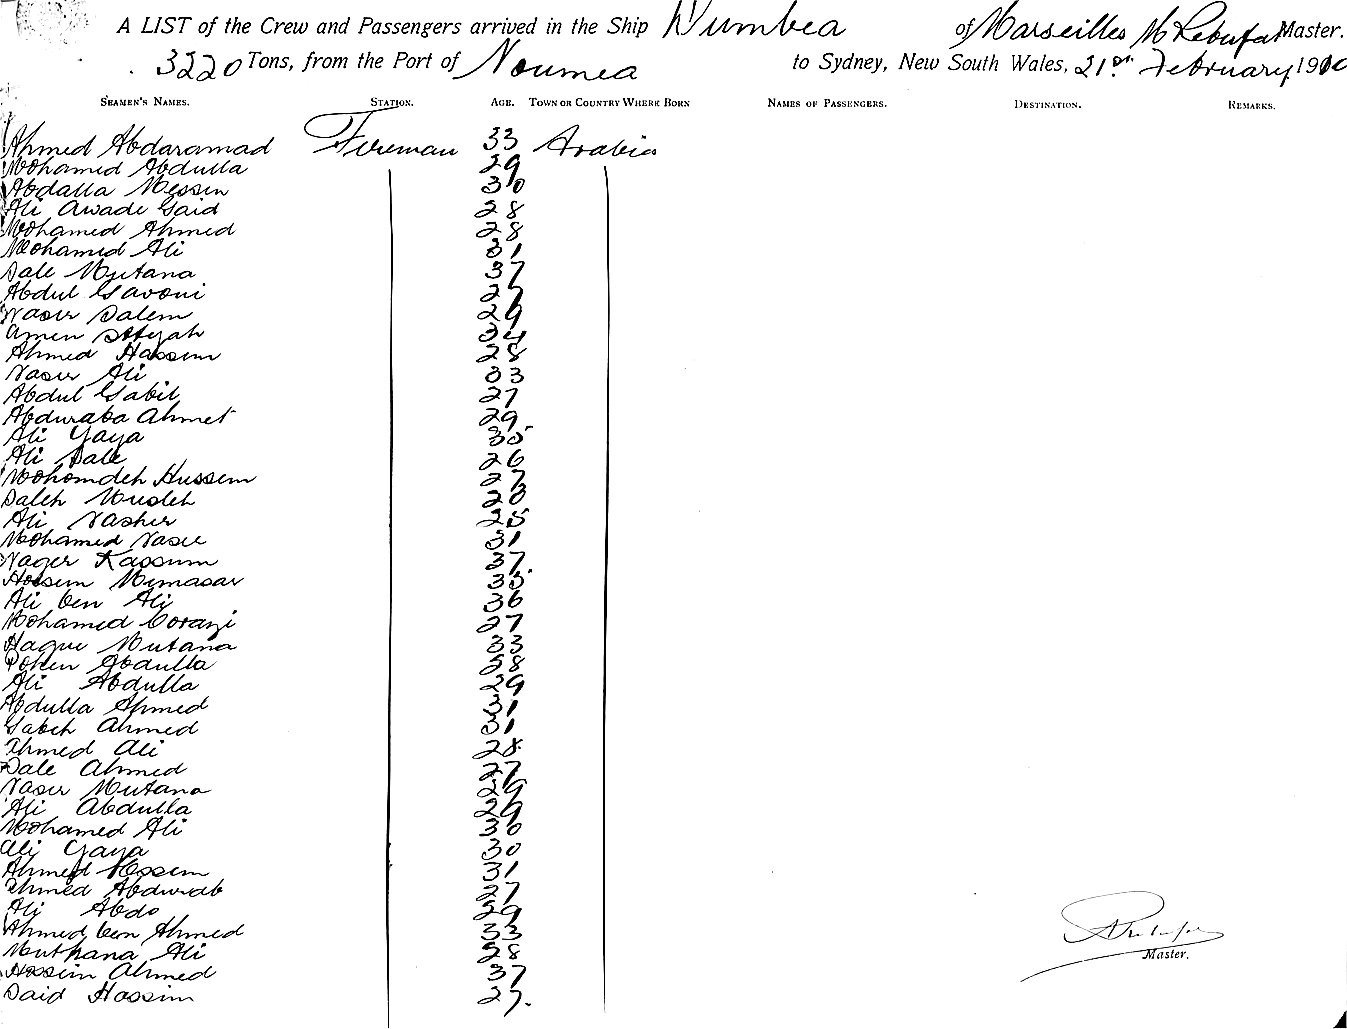 A LIST of the Crew and Passengers arrived in the Ship Numbea of Marseilles M Rebufat Master.
3220 Tons, from the Port of Noumea to Sydney, New South Wales, 21st February 1910
SEAMEN'S NAMES. STATION. AGE. TOWN OR COUNTRY WHERE BORN NAMES OF PASSENGERS. DESTINATION. REMARKS.
Ahmed Abdaramad Fireman 33 Arabia
Mohamed Abdulla 29
Abdalla Messin 30
Ali Awade Said 28
Mohamed Ahmed 28
Mohamed Ali 31
Sale Mutana 37
Abdul Gavoni 27
Naser Salem 29
Amen 34
Ahmed Hassem 28
Naser Ali 33
Abdul Gabil 27
Abduraba Ahmet 29
Ali Yaya 35
Ali Sale 26
Mohomdeh Hussem 27
Saleh Musleh 28
Ali Nasher 25
Mohamed Nasee 31
Nager Kassum 37
Hossem Mimasar 35
Ali ben Ali 36
Mohamed Corazi 27
Hague Mutana 33
Abdulla 38
Ali Abdulla 29
Abdulla Ahmed 31
Saleh Ahmed 31
Ahmed Ali 28
Sale Ahmed 27
Naser Mutana 29
Ali Abdulla 29
Mohamed Ali 30
Ali Yaya 30
Ahmed Hossem 31
Ahmed Abdurab 27
Ali Abdo 29
Ahmed ben Ahmed 33
Muthana Ali 28
Hossein Ahmed 37
Said Hassim 27.
Master.